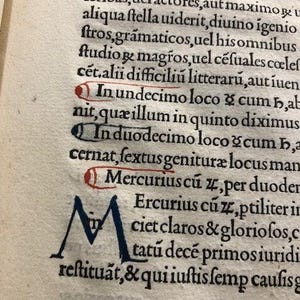 actores, aut maximo
aliqua stella uiderit, diuino igenio
stros, gramaticos, uel his omnibus
studio & magros, uel cẽsuales cœles
cẽt. alii difficiliũ litterarũ, aut iuen
In undecimo loco ☿ cum ♄, ab
nit, quæ illum in quinto diximus
In duodecimo loco ☿ cum ♄, de
cernat, sextus genituræ locus man
Mercurius cũ ♃, per duoden
M Ercurius cũ ♃, ptiliter in
m ciet claros & gloriosos, c
tatũ decẽ primos iuridi
restituãt, & qui iustis semp causis g